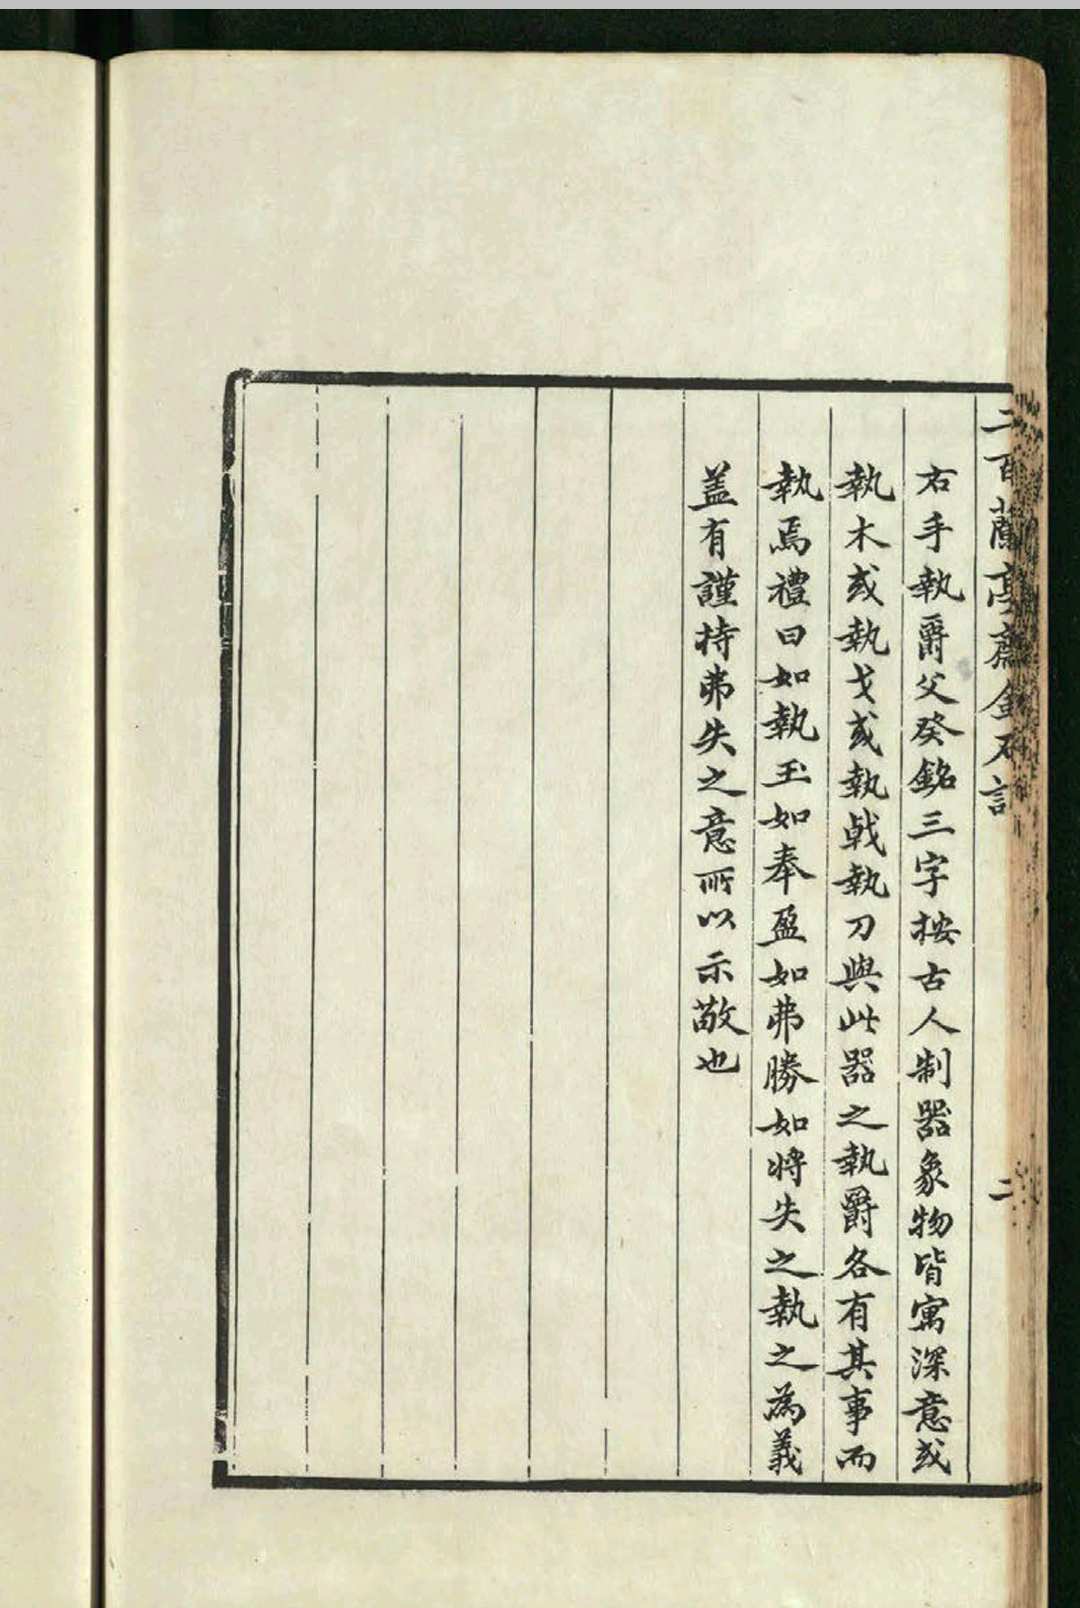 二百蘭亭齋金石記
二
右手執爵父癸銘三字按古人制器象物皆寓深意或
執木或執戈或執戟執刀與此器之執爵各有其事而
執焉禮曰如執玉如奉盈如弗勝如將失之執之為義
盖有謹持弗失之意所以示敬也